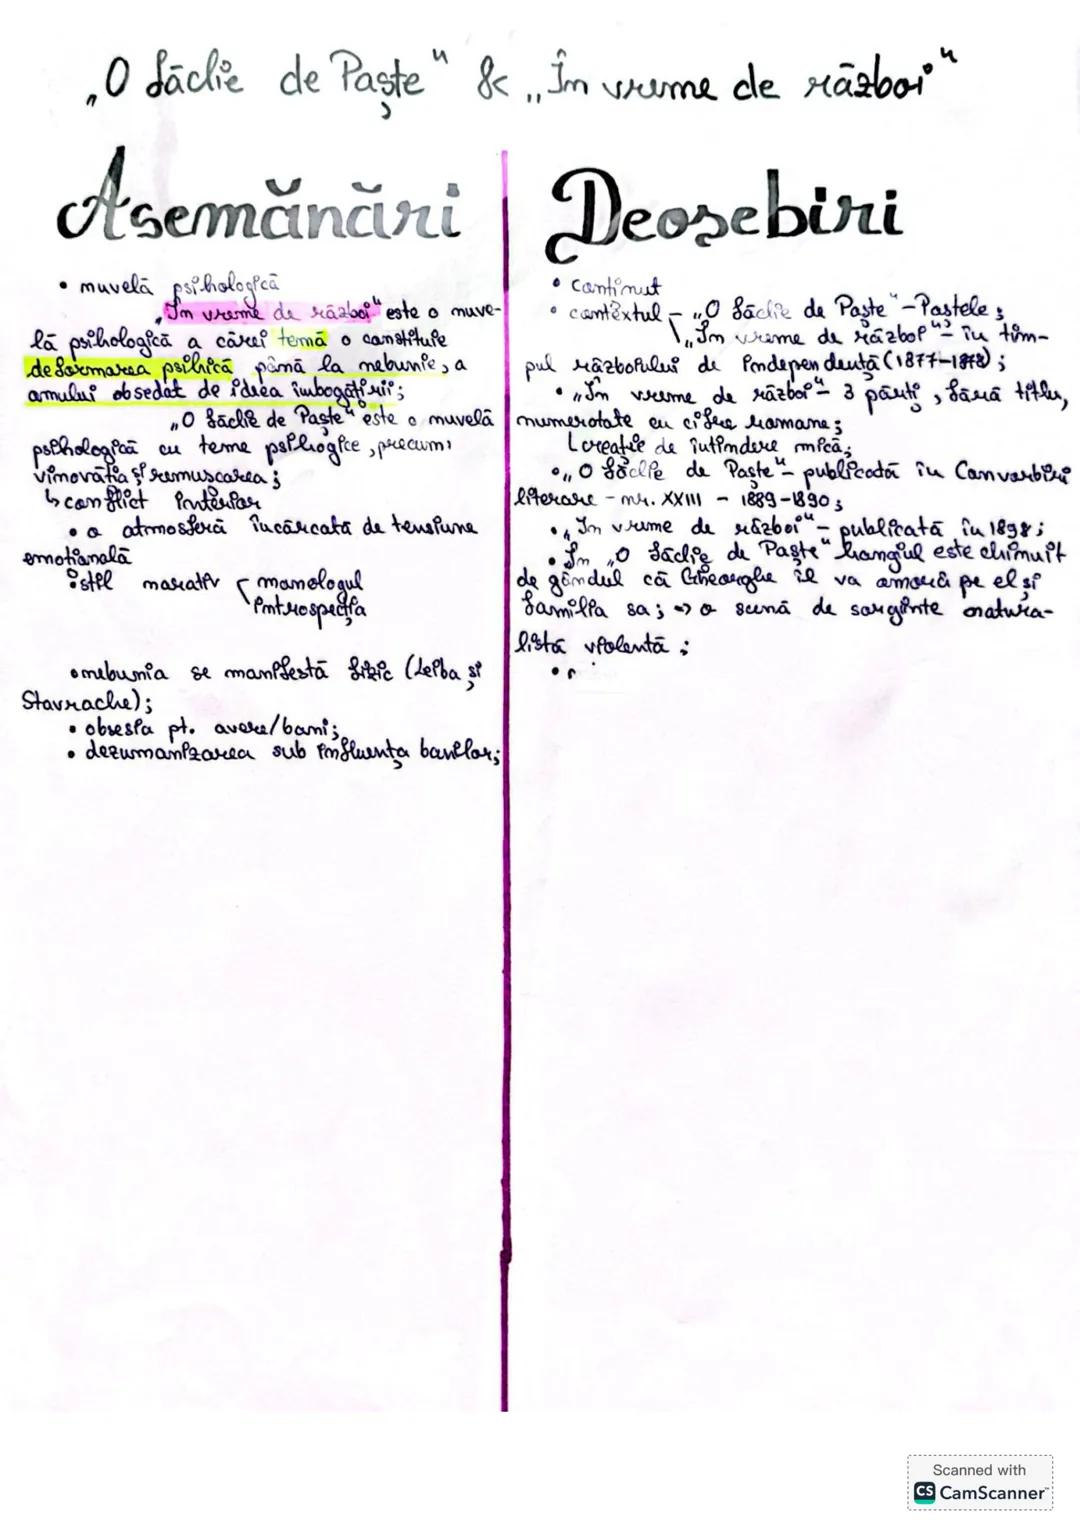 „O făclie de Paște" & „În vreme de război"
Asemănări
• nuvelă psihologică
„În vreme de război" este o nuve-
lă psihologică a cărei temă o constituie
deformarea psihică până la nebunie, a
omului obsedat de ideea îmbogățirii;
„O făclie de Paște" este o nuvelă
psihologică cu teme psihogice, precum:
vinovăția și remușcarea;
↳ conflict interior
• o atmosferă încărcată de tensiune
emoțională
• stil narativ - monologul
introspecția
• nebunia se manifestă fizic (Leiba și
Stavrache);
• obsesia pt. avere/bani;
• dezumanizarea sub influența banilor;
Deosebiri
• conținut
• contextul - „O făclie de Paște" - Paștele;
\ „În vreme de război" - în tim-
pul războiului de Independență (1877-1878);
• „În vreme de război" - 3 părți, fără titlu,
numerotate cu cifre romane;
creație de întindere mică;
• „O făclie de Paște" - publicată în Convorbiri
literare - nr. XXIII - 1889-1890;
• „În vreme de război" - publicată în 1898;
• În „O făclie de Paște" hangiul este chinuit
de gândul că Gheorghe îl va omorî pe el și
familia sa; => o scenă de sorginte natura-
listă violentă;
•
Scanned with
CS CamScanner